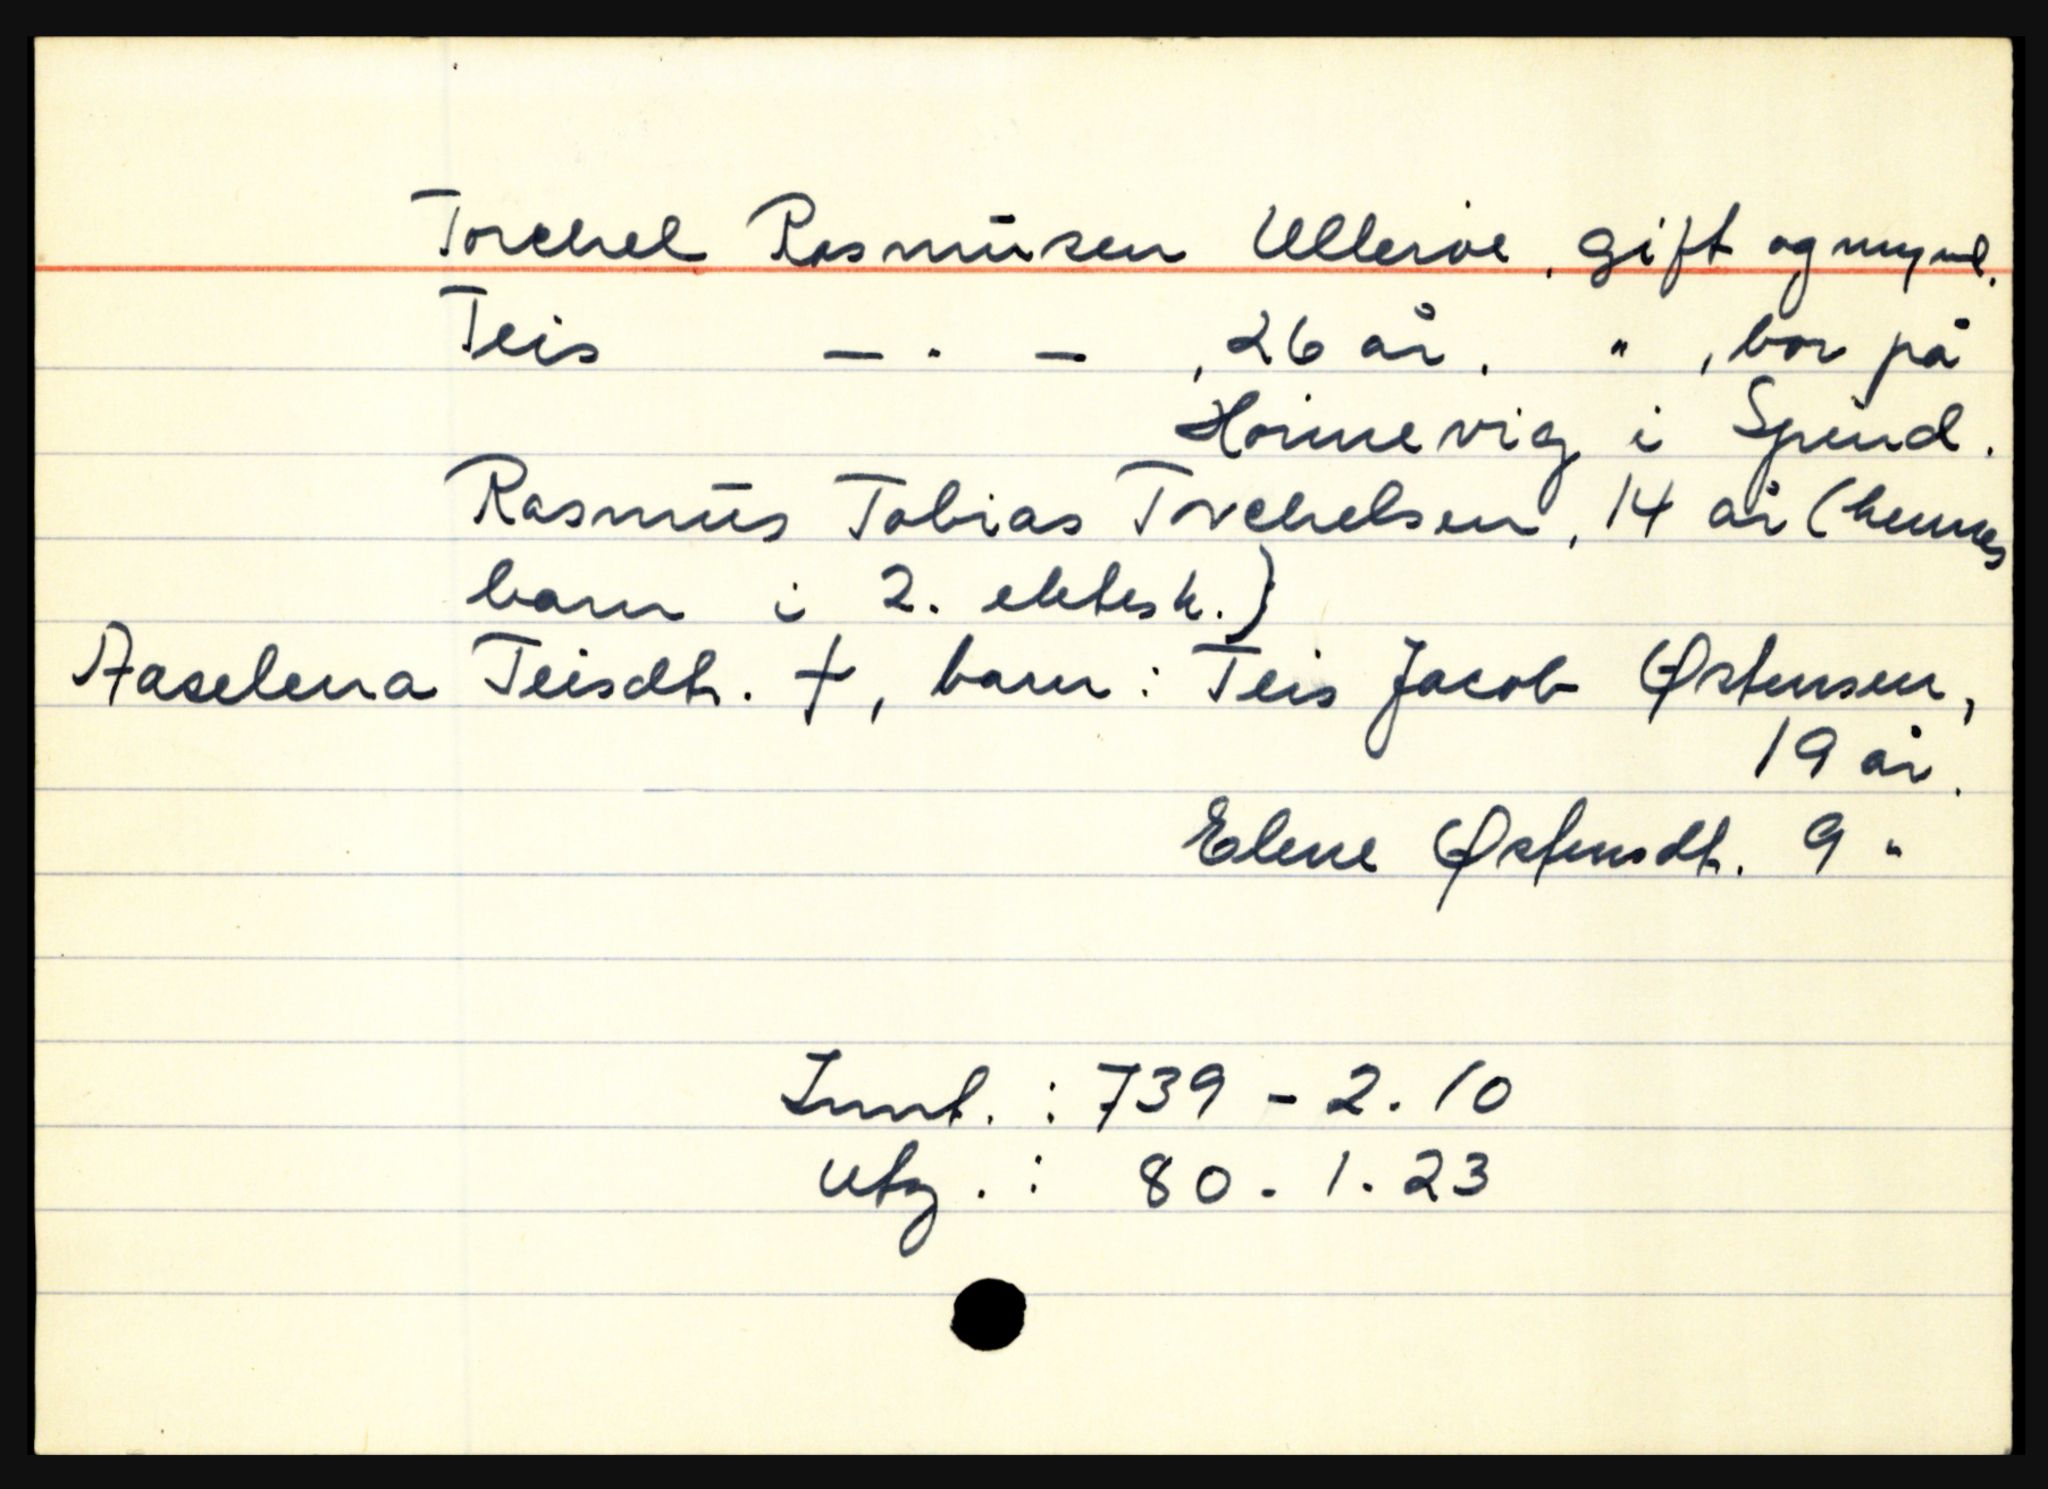 Torchel Rasmusen Ullerøe, gift og mynd.
Teis — " — , 26 år, " , bor på
Hoinevig i Spind.
Rasmus Tobias Torchelsen, 14 år (hennes
barn i 2. ektesk.)
Aaselena Teisdtr. †, barn: Teis Jacob Østensen,
19 år.
Elene Østensdtr. 9 "
Innt. : 739 - 2. 10
Utg. : 80 - 1. 23